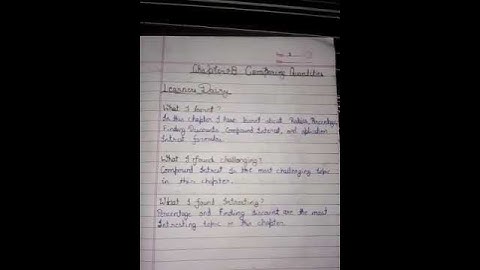 Chapter-8 Comparing Quantities
Learners Dairy
What I learnt?
In this chapter I have learnt about Ratios, Percentage,
Finding Discounts, Compound Interest, and application
Intrest formulas.
What I found challenging?
Compound Intrest is the most challenging topic
in this chapter.
What I found Intersting?
Percentage and Finding discount are the most
Intresting topic in this chapter